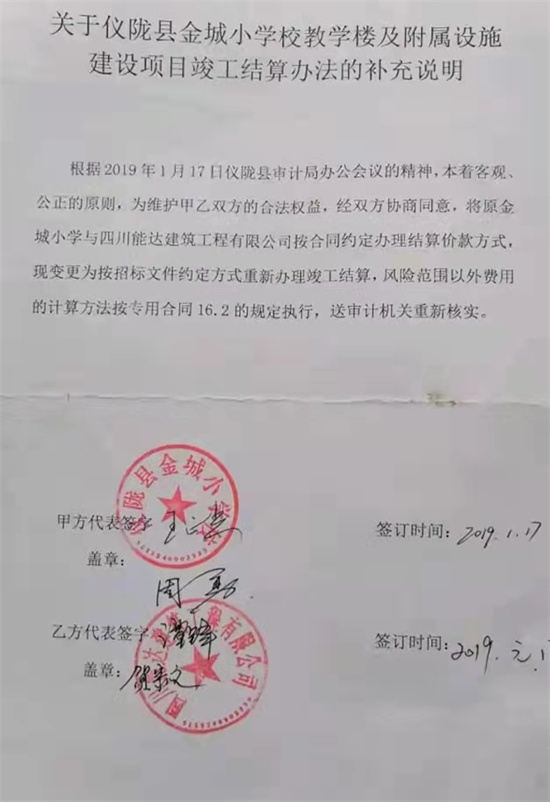 关于仪陇县金城小学校教学楼及附属设施
建设项目竣工结算办法的补充说明
根据2019年1月17日仪陇县审计局办公会议的精神，本着客观、
公正的原则，为维护甲乙双方的合法权益，经双方协商同意，将原金
城小学与四川能达建筑工程有限公司按合同约定办理结算价款方式，
现变更为按招标文件约定方式重新办理竣工结算，风险范围以外费用
的计算方法按专用合同16.2的规定执行，送审计机关重新核实。
陇县金城小学
甲方代表签字
签订时间：2019.1.17
盖章：
周
乙方代表签字
签订时间：2019.元.1
盖章：
四川 达建 程有限公司